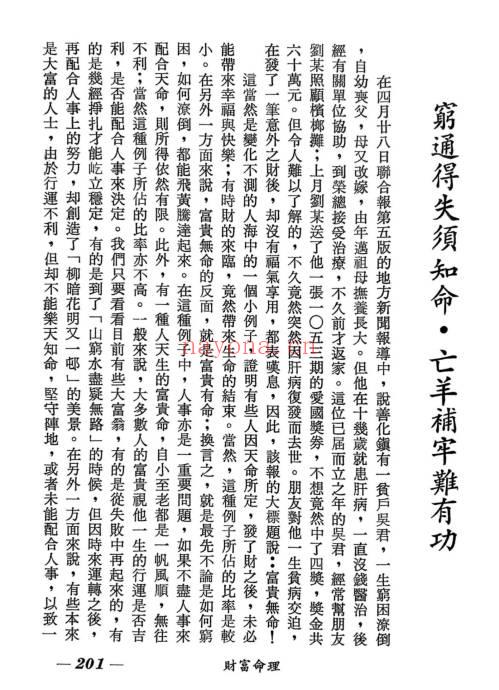 窮通得失須知命・亡羊補牢難有功
在四月廿八日聯合報第五版的地方新聞報導中，說善化鎮有一貧戶吳君，一生窮困潦倒
，自幼喪父，母又改嫁，由年邁祖母撫養長大。但他在十幾歲就患肝病，一直沒錢醫治，後
經有關單位協助，到榮總接受治療，不久前才返家。這位已屆而立之年的吳君，經常幫朋友
劉某照顧檳榔攤；上月劉某送了他一張一〇五二期的愛國獎券，不想竟然中了四獎，獎金共
六十萬元。但令人難以了解的，不久竟然突然因肝病復發而去世。朋友對他一生貧病交迫，
在發了一筆意外之財後，却沒有福氣享用，都表嘆息，因此，該報的大標題說：富貴無命！
這當然是變化不測的人海中的一個小例子，證明有些人因天命所定，發了財之後，未必
能帶來幸福與快樂；有時財的來臨，竟然帶來生命的結束。當然，這種例子所佔的比率是較
小。在另外一方面來說，富貴無命的反面，就是富貴有命；換言之，就是最先不論是如何窮
困，如何潦倒，都能飛黃騰達起來。在這種例子中，人事亦是一重要問題，如果不盡人事來
配合天命，則所得依然有限。此外，有一種人天生的富貴命，自小至老都是一帆風順，無往
不利；當然這種例子所佔的比率亦不高。一般來說，大多數人的富貴視他一生的行運是否吉
利，是否能配合人事來決定。我們只要看看目前有些大富翁，有的是從失敗中再起來的，有
的是幾經掙扎才能屹立穩定，有的是到了「山窮水盡疑無路」的時候，但因時來運轉之後，
再配合人事上的努力，却創造了「柳暗花明又一邨」的美景。在另外一方面來說，有些本來
是大富的人士，由於行運不利，但却不能樂天知命，堅守陣地，或者未能配合人事，以致一
—201— 財富命理